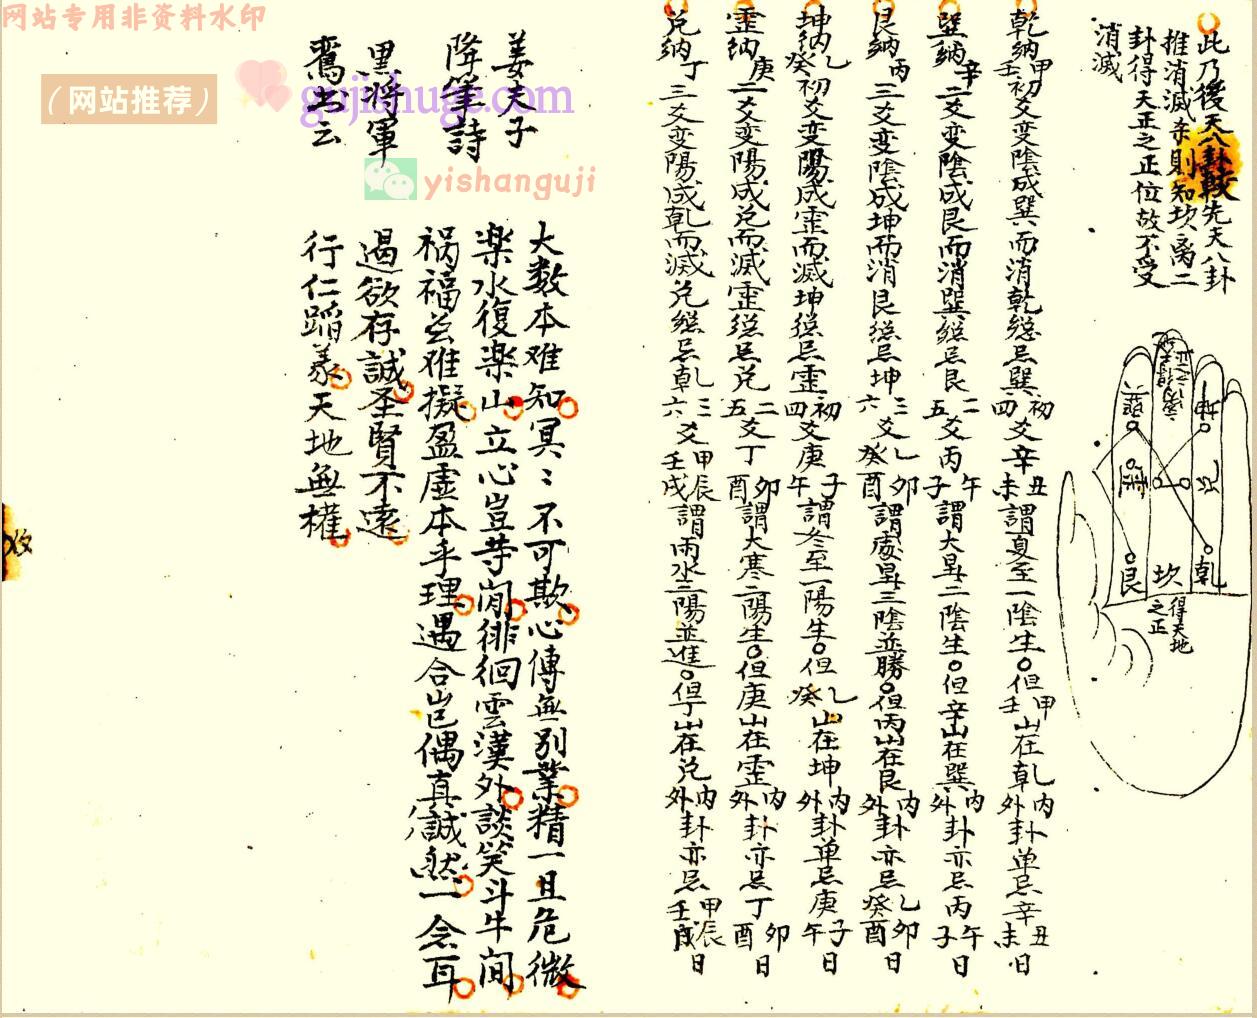 此乃後天八卦較先天八卦
推消滅杀則知坎离二
卦得天正之正位故不受
消滅
乾納甲壬初爻变陰成巽而消乾總忌巽初四爻辛丑未謂夏至一陰生但甲壬山在乹内外卦单忌辛丑未日
巽納辛二爻变陰成艮而消巽總忌艮二五爻丙午子謂大暑二陰生但辛山在巽内外卦亦忌丙午子日
艮納丙三爻变陰成坤而消艮總忌坤三六爻乙癸卯酉謂處暑三陰並勝但丙山在艮内外卦亦忌乙癸卯酉日
坤納乙癸初爻变陽成霊而滅坤總忌霊初四爻庚子午謂冬至一陽生但乙癸山在坤内外卦单忌庚子午日
霊納庚二爻变陽成兑而滅霊總忌兑二五爻丁卯酉謂大寒二陽生但庚山在霊内外卦亦忌丁卯酉日
兑納丁三爻变陽成乹而滅兑總忌乹三六爻甲壬辰戌謂雨水三陽並進但丁山在兑内外卦亦忌甲壬辰戌日
坤
兑
乾
巽
霊
艮
坎
得天地
之正
姜夫子
降筆詩
大数本难知冥〻不可欺心傳無別業精一且危微
楽水復楽山立心豈等閑徘徊雲漢外談笑斗牛間
黒將軍
祸福总难擬盈虚本乎理遇合岂偶真誠然一念耳
鸞出云
遏欲存誠圣賢不遠
行仁蹈義天地無權
网站专用非资料水印
（网站推荐）
gujishuge.com
yishanguji